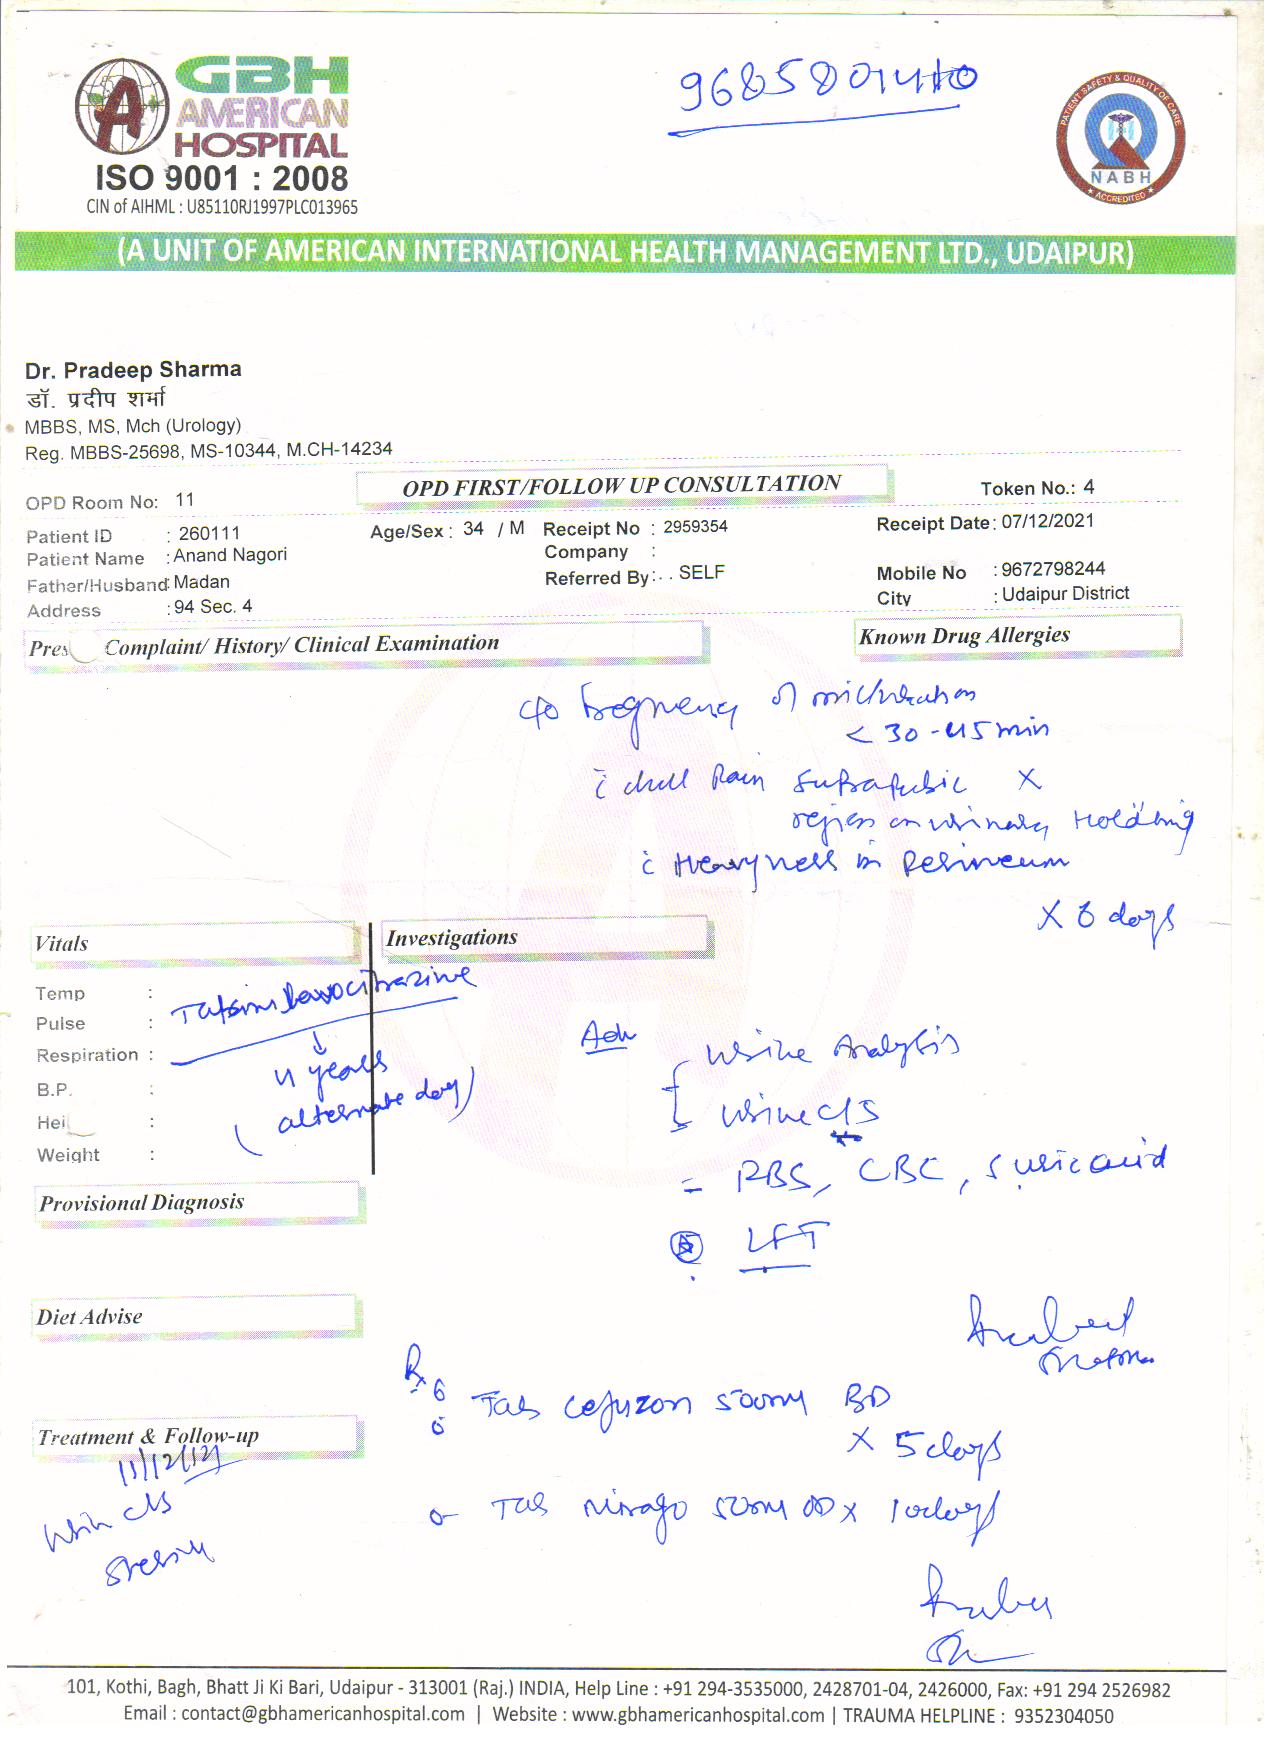 GBH
AMERICAN
HOSPITAL
ISO 9001 : 2008
CIN of AIHML : U85110RJ1997PLC013965
PATIENT SAFETY & QUALITY OF CARE
NABH
ACCREDITED
(A UNIT OF AMERICAN INTERNATIONAL HEALTH MANAGEMENT LTD., UDAIPUR)
Dr. Pradeep Sharma
डॉ. प्रदीप शर्मा
MBBS, MS, Mch (Urology)
Reg. MBBS-25698, MS-10344, M.CH-14234
OPD Room No: 11
OPD FIRST/FOLLOW UP CONSULTATION
Token No.: 4
Patient ID : 260111 Age/Sex : 34 / M Receipt No : 2959354 Receipt Date: 07/12/2021
Patient Name : Anand Nagori Company :
Father/Husband: Madan Referred By: . . SELF Mobile No : 9672798244
Address : 94 Sec. 4 City : Udaipur District
Complaint/ History/ Clinical Examination
Known Drug Allergies
c/o frequency of micturation
< 30-45 min
c dull Pain suprapubic
region on urinary Holding
c Heavyness in Perineum
X 6 days
Vitals
Investigations
Temp :
Pulse :
Respiration :
B.P. :
Hei :
Weight :
levocitrazine
4 years
(alternate day)
Adv
Urine Analysis
Urine C/S
- RBS, CBC, S uric acid
LFT
Provisional Diagnosis
Diet Advise
Rx
Tab 500mg BD
X 5 days
Treatment & Follow-up
11/12/21
Urine C/S
Sterile
Tab 500mg OD x 10 days
101, Kothi, Bagh, Bhatt Ji Ki Bari, Udaipur - 313001 (Raj.) INDIA, Help Line : +91 294-3535000, 2428701-04, 2426000, Fax: +91 294 2526982
Email : contact@gbhamericanhospital.com | Website : www.gbhamericanhospital.com | TRAUMA HELPLINE : 9352304050